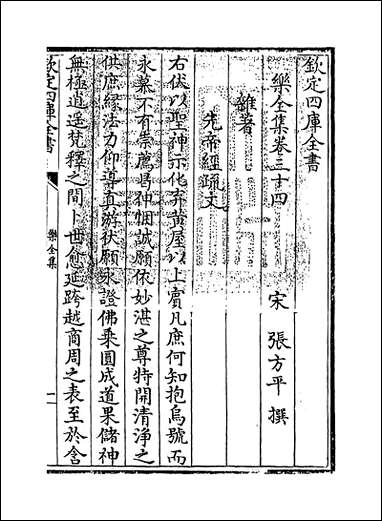 欽定四庫全書
樂全集卷三十四
宋 張方平 撰
雜著
先帝經疏文
右伏以聖神示化弃黄屋以上賓凡庶何知抱烏號而
永慕不有崇薦曷伸悃誠願依妙湛之尊特開清浄之
供庶緣法力仰導真游伏願永證佛乘圓成道果儲神
無極逍遥梵釋之間卜世愈延跨越商周之表至於含
欽定四庫全書
樂全集
一